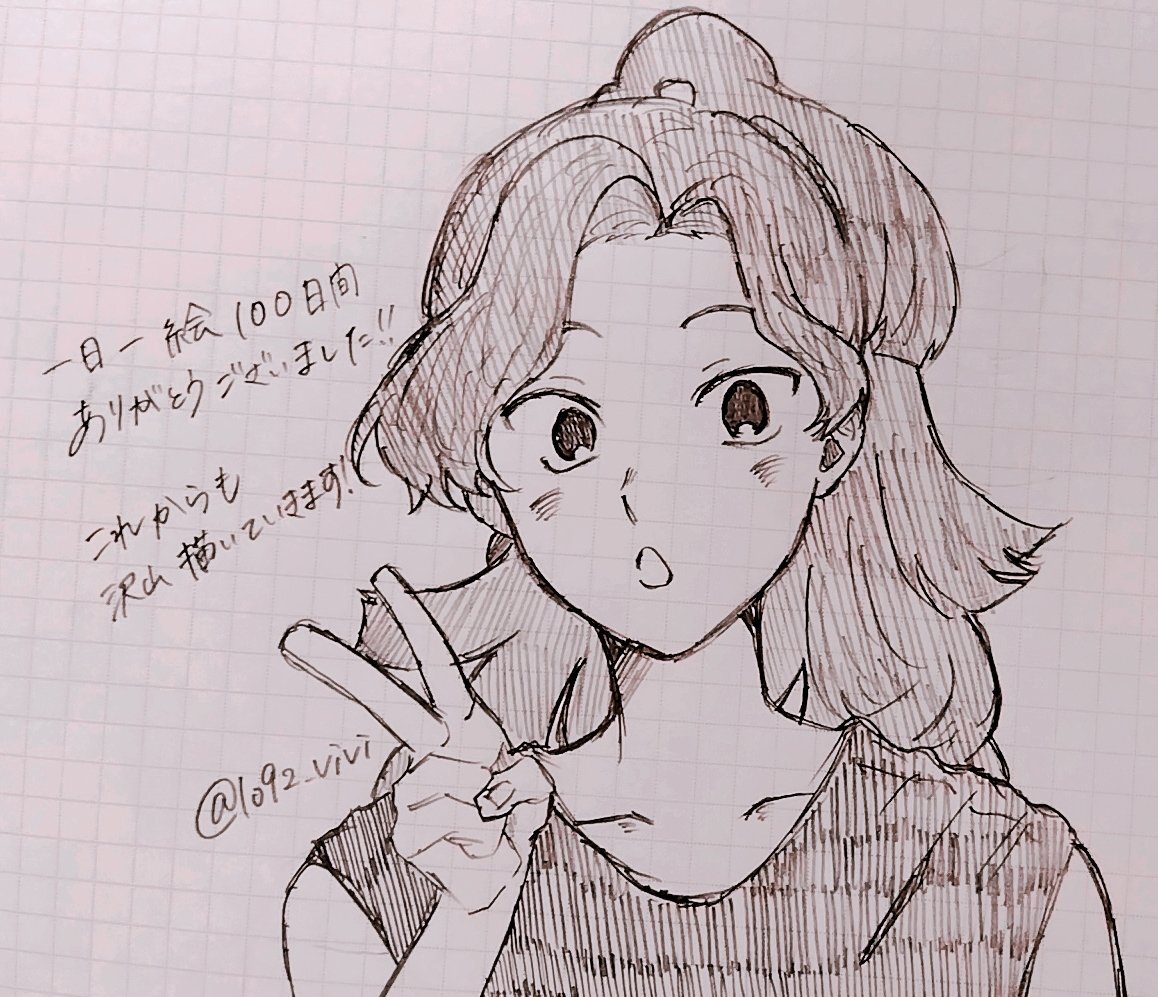 一日一絵100日間
ありがとうございました!!
これからも
沢山描いていきます!
@lo92_vivi